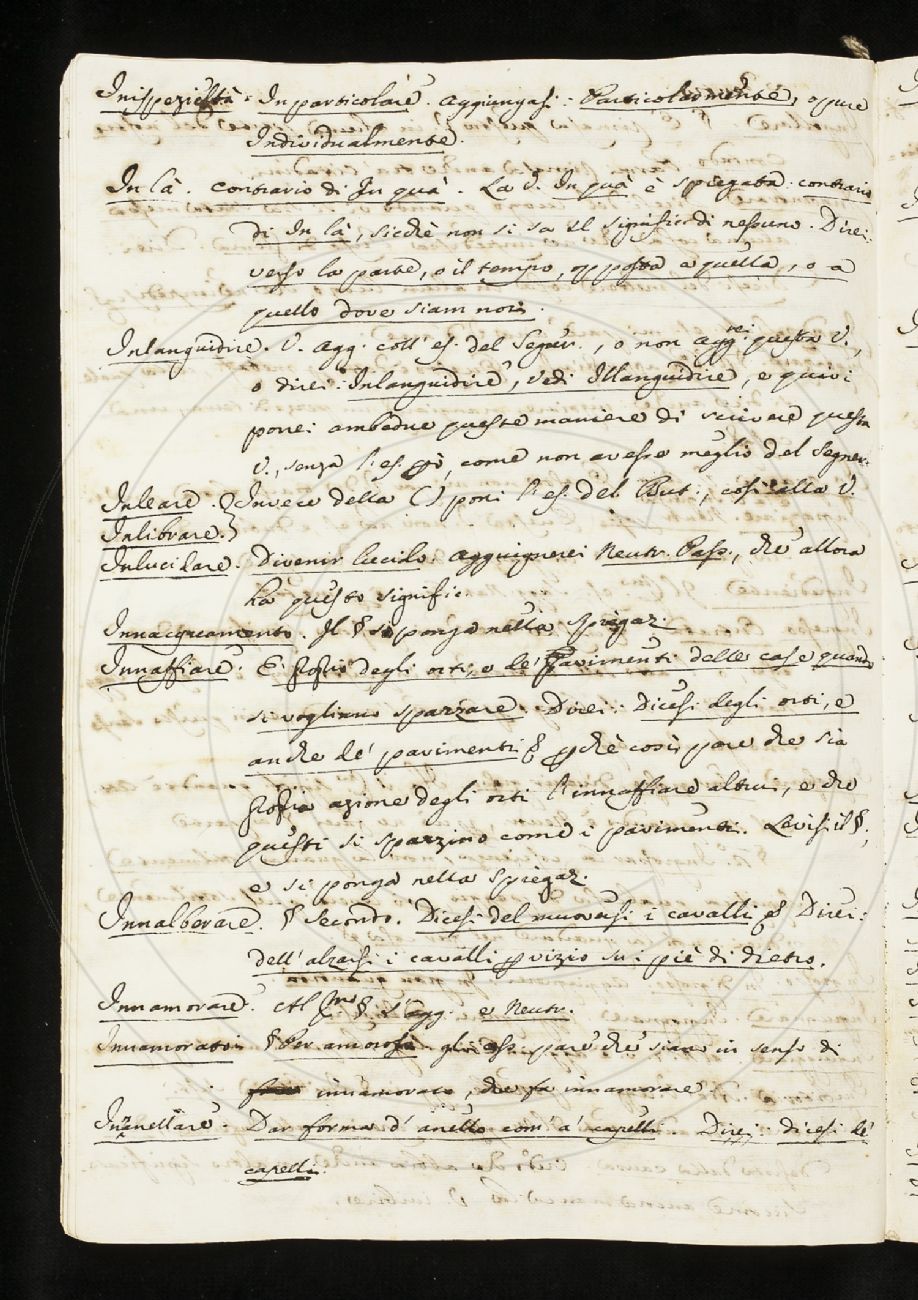 Inispezieltà. In particolare. aggiungasi: Particolarmente, oppure
Individualmente.
In là. contrario di In quà. La V. In quà è spiegata: contrario
di In là, sicchè non si sa il signific. di nessuno. Direi:
verso la parte, o il tempo, opposta a quella, o a
quello dove siam noi.
Inlanguidire. V. agg. coll' es. del Segner., o non aggrei questa V.,
o direi: Inlanguidire, vedi Illanguidire, e quivi
porrei ambedue queste maniere di scrivere questa
V., senza l'es. , come non avesse meglio del Segner.
Inleare. } Invece della () poni l'es. del But., così alla V.
Inlibrare. }
Inlucidare. Divenir lucido. aggiugnerei Neutr. Pass., chè allora
ha questo signific.
Innacquamento. Il § si ponga nella spiegaz.
Innaffiare. È degli orti, e de' pavimenti delle case quando
si vogliano spazzare. Direi: Dicesi degli orti, e
anche de' pavimenti; perchè così pare che sia
azione degli orti l'innaffiare altrui, e che
questi si spazzino come i pavimenti. Levisi il §,
e si ponga nella spiegaz.
Innalberare. § Secondo. Dicesi del muoversi i cavalli Direi:
dell' alzarsi i cavalli per vizio su i piè di dietro.
Innamorare. Al § l'agg. e Neutr.
Innamorato. § Per amoroso. gli es. pare che siano in senso di
innamorato, che fa innamorare
Innanellare. Dar forma d' anello com' a' capelli. Direi: dicesi de'
capelli.